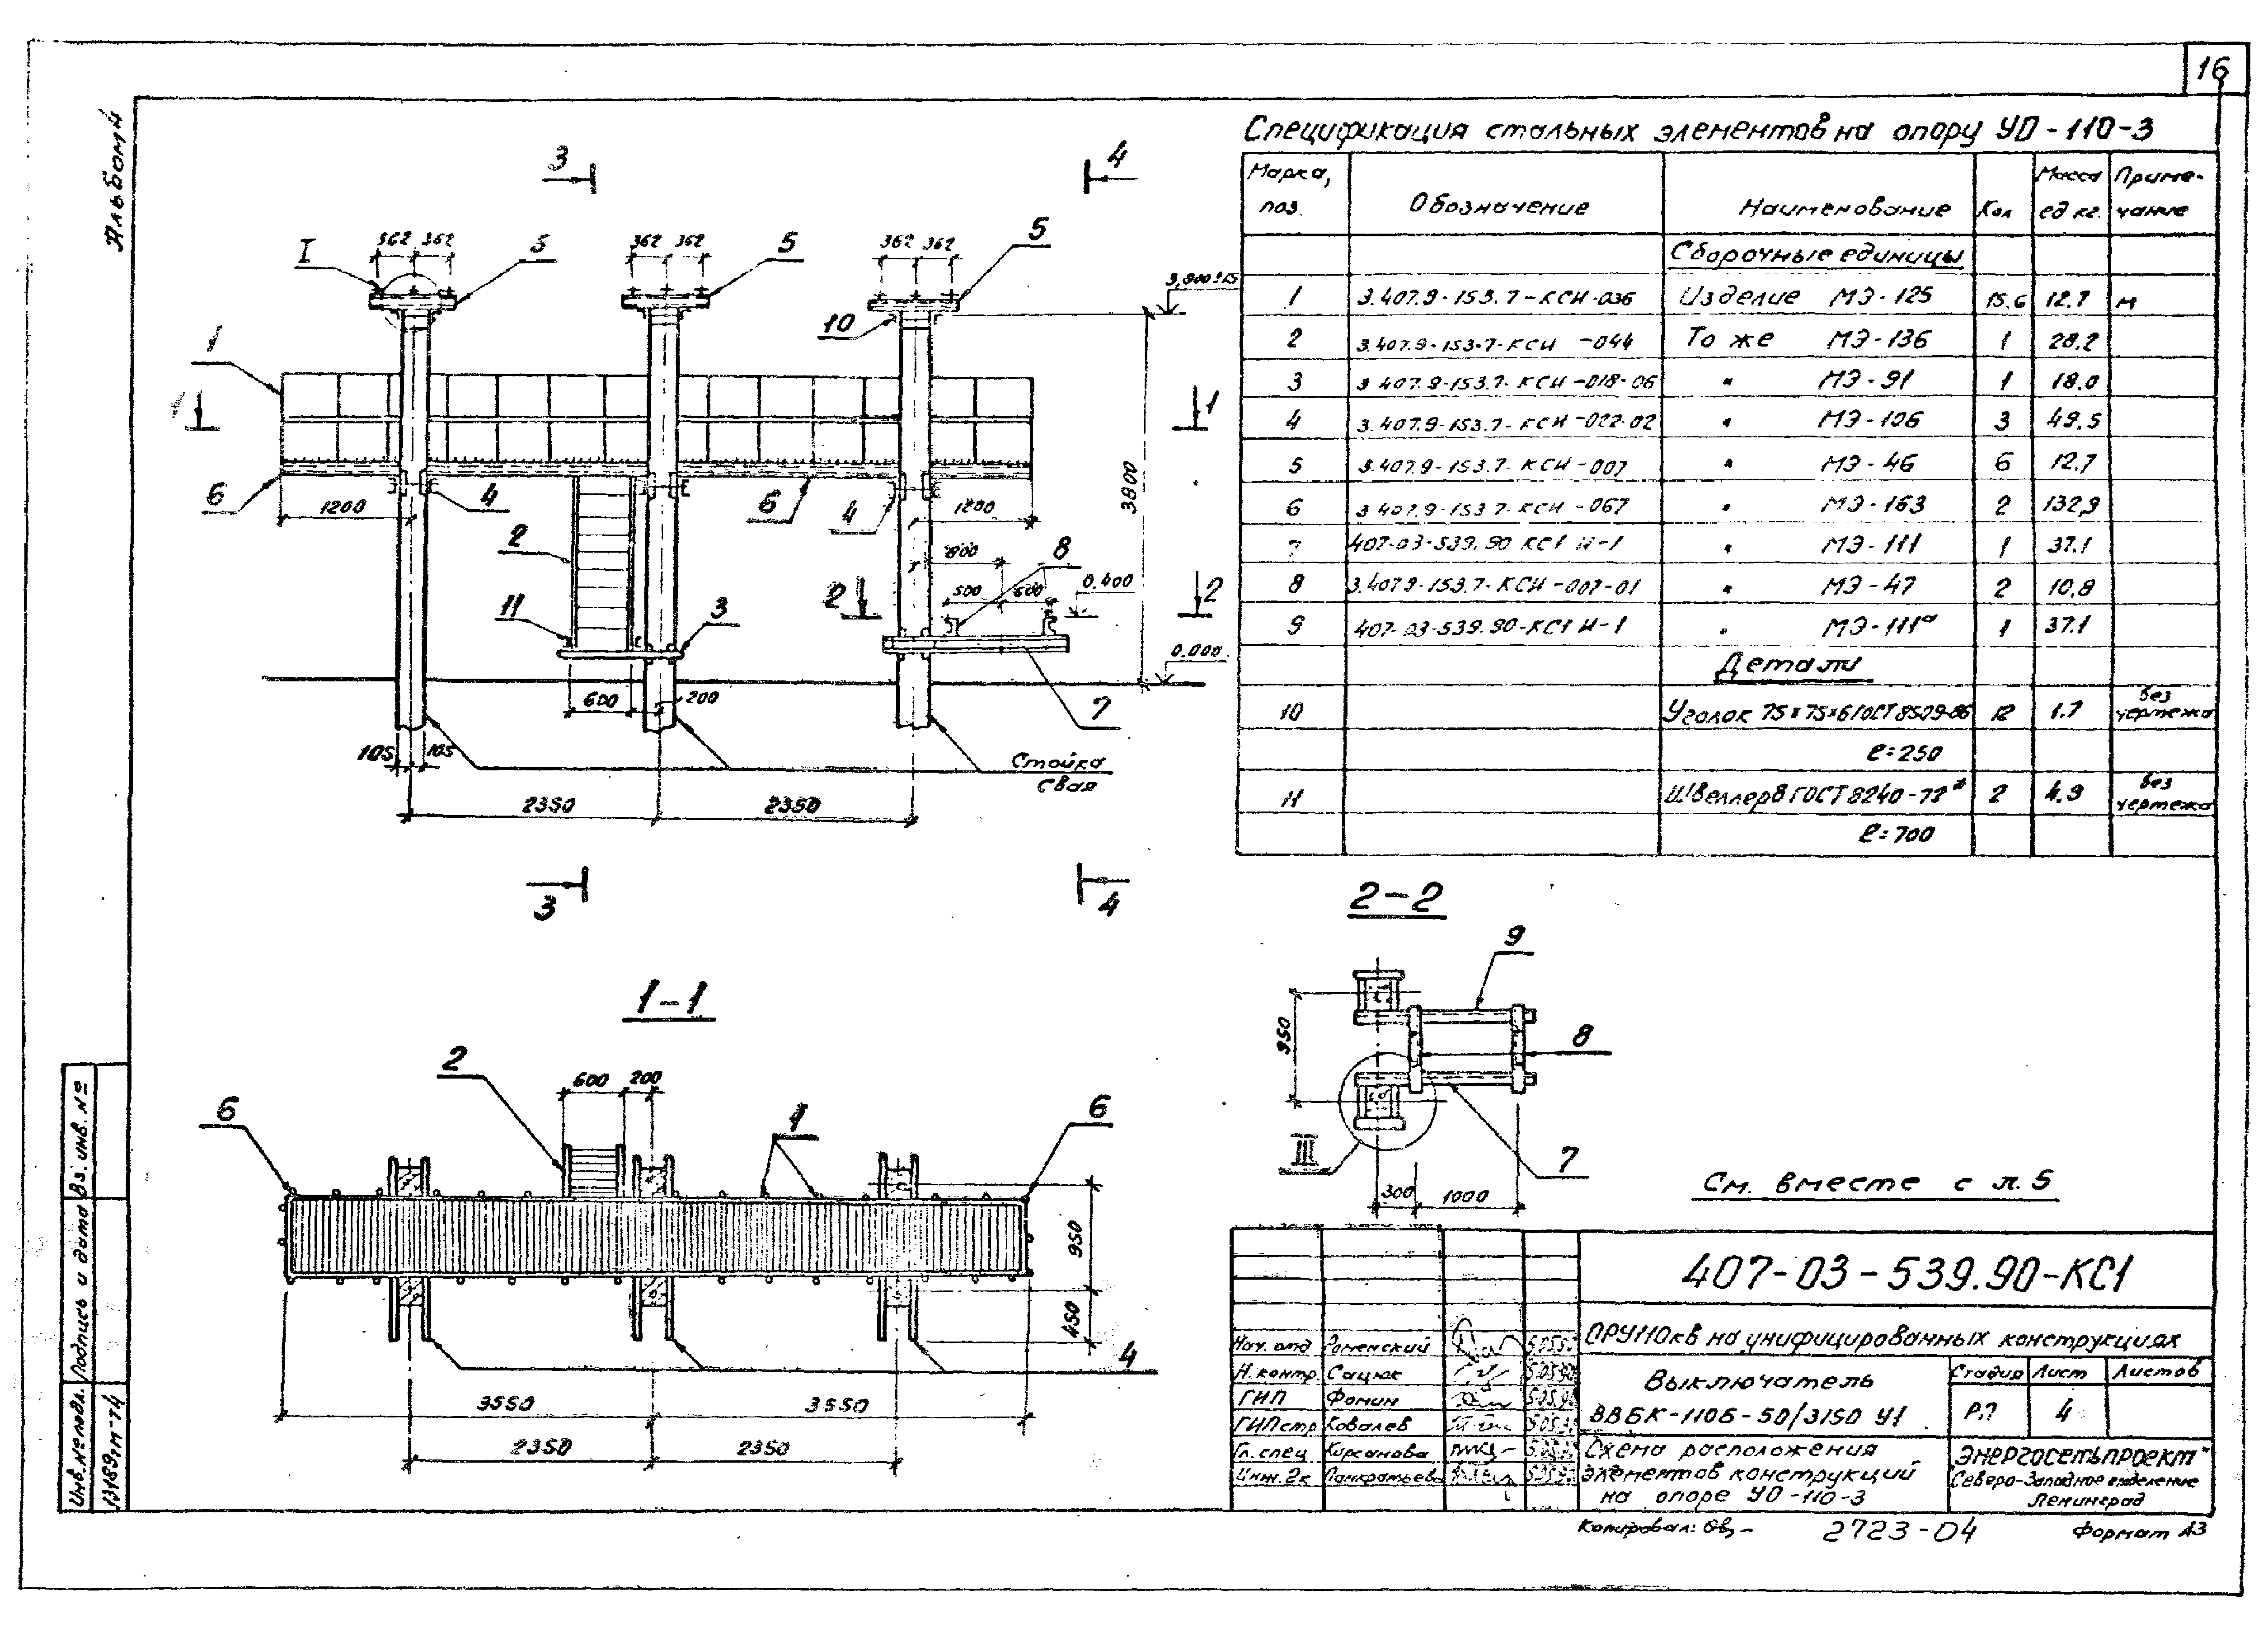 16
Альбом 4
3 4
I 362 362 5 362 362 5 362 362 5
3,800
10
1 1 1
6 1200 4 6 4 1200
3800
2 800 8
500 600 0.400
2 2
11 3
0.000
600 200 7
105 105
Стойка
свая
2350 2350
3 4
Спецификация стальных элементов на опору УО-110-3
Марка, поз. Обозначение Наименование Кол Масса ед кг. Примечание
Сборочные единицы
1 3.407.9-153.7-КСИ-036 Изделие МЭ-125 15.6 12.7 м
2 3.407.9-153.7-КСИ-044 То же МЭ-136 1 28.2
3 3.407.9-153.7-КСИ-018-06 " МЭ-91 1 18.0
4 3.407.9-153.7-КСИ-022-02 " МЭ-106 3 49.5
5 3.407.9-153.7-КСИ-007 " МЭ-46 6 12.7
6 3.407.9-153.7-КСИ-067 " МЭ-163 2 132,9
7 407-03-539.90 КС1 И-1 " МЭ-111 1 37.1
8 3.407.9-153.7-КСИ-007-01 " МЭ-47 2 10.8
9 407-03-539.90-КС1 И-1 " МЭ-111ᵃ 1 37.1
Детали
10 Уголок 75×75×6 ГОСТ 8509-86 12 1.7 без чертежа
ℓ=250
11 Швеллер 8 ГОСТ 8240-72* 2 4.9 без чертежа
ℓ=700
1-1
2 600 200
6 1 6
950
450
4
3550 3550
2350 2350
2-2
9
950
8
III 7
300 1000
См. вместе с л. 5
407-03-539.90-КС1
ОРУ110кв на унифицированных конструкциях
Нач. отд Роменский
Н. контр. Сацюк
ГИП Фомин
ГИП стр Ковалев
Гл. спец Кирсанова
Инж. 2к Панкратьева
Выключатель
ВВБК-110Б-50/3150 У1
Стадия Лист Листов
РП 4
Схема расположения
элементов конструкций
на опоре УО-110-3
"ЭНЕРГОСЕТЬПРОЕКТ"
Северо-Западное отделение
Ленинград
Инв. № подл. Подпись и дата Вз. инв. №
13189тм-т4
Копировал: 2723-04 Формат А3